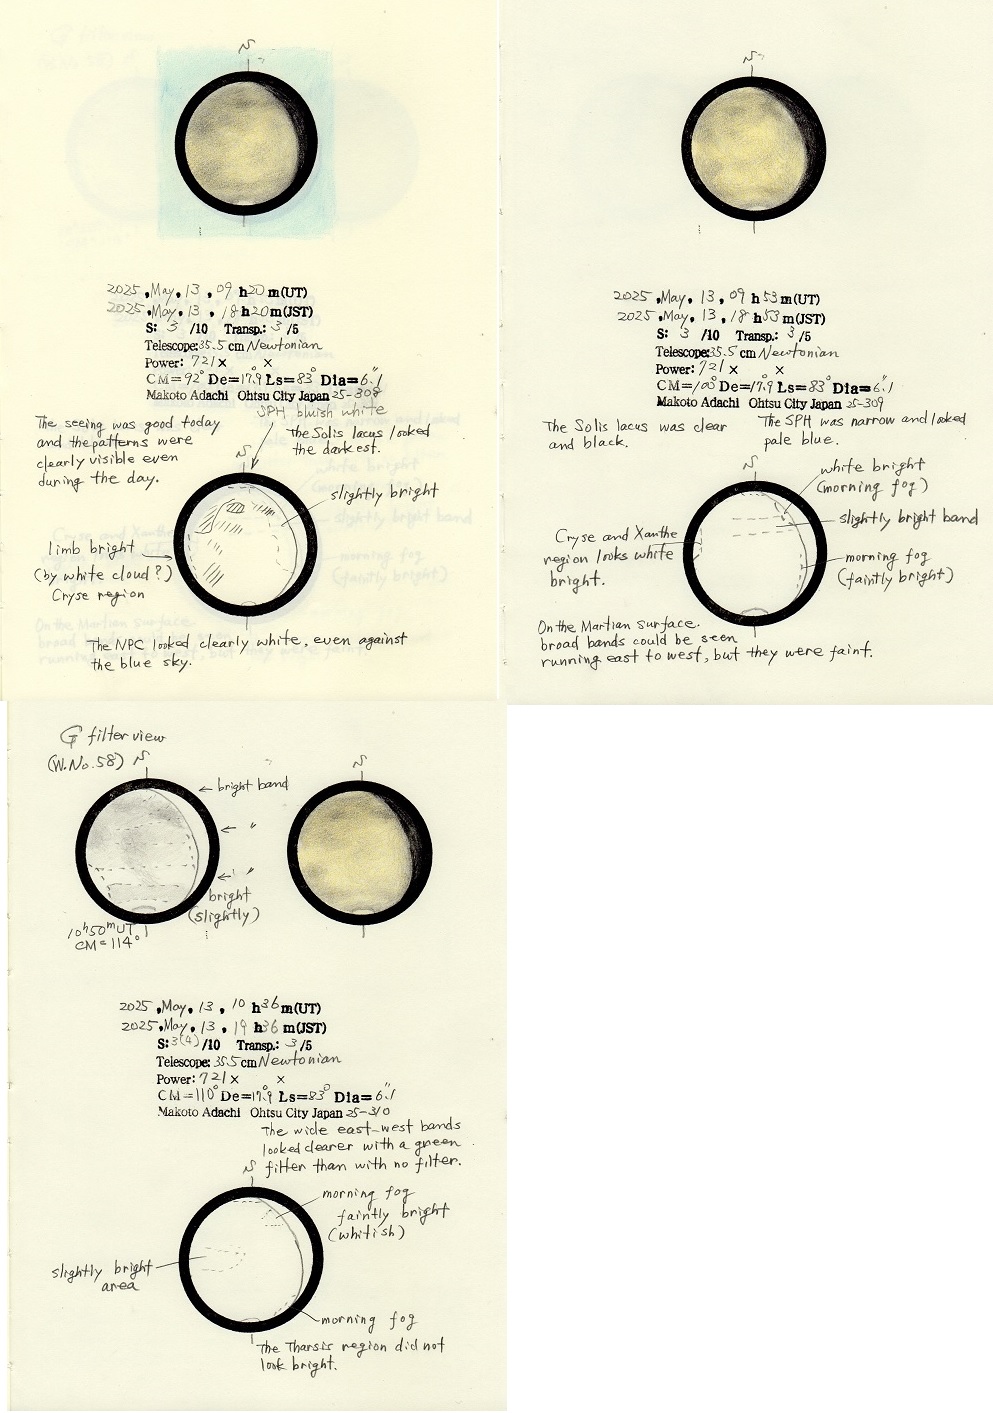 N
2025, May. 13, 09 h20 m(UT)
2025, May. 13, 18 h20 m(JST)
S: 3 /10 Transp.: 3 /5
Telescope: 35.5 cm Newtonian
Power: 721 x x
CM=92° De=17.9° Ls=83° Dia=6".1
Makoto Adachi Ohtsu City Japan 25-308
The seeing was good today
and the patterns were
clearly visible even
during the day.
SPH bluish white
The Solis lacus looked
the darkest.
N
slightly bright
limb bright
(by white cloud?)
Cryse region
The NPC looked clearly white, even against
the blue sky.
N
2025, May. 13, 09 h53 m(UT)
2025, May. 13, 18 h53 m(JST)
S: 3 /10 Transp.: 3 /5
Telescope: 35.5 cm Newtonian
Power: 721 x x
CM=100° De=17.9° Ls=83° Dia=6".1
Makoto Adachi Ohtsu City Japan 25-309
The Solis lacus was clear
and black.
The SPH was narrow and looked
pale blue.
N
white bright
(morning fog)
slightly bright band
Cryse and Xanthe
region looks white
bright.
morning fog
(faintly bright)
On the Martian surface.
broad bands could be seen
running east to west, but they were faint.
G filter view
(W.No.58)
N
bright band
"
"
bright
(slightly)
10h50mUT
CM=114°
N
2025, May. 13, 10 h36 m(UT)
2025, May. 13, 19 h36 m(JST)
S: 3(4) /10 Transp.: 3 /5
Telescope: 35.5 cm Newtonian
Power: 721 x x
CM=110° De=17.9° Ls=83° Dia=6".1
Makoto Adachi Ohtsu City Japan 25-310
The wide east-west bands
looked clearer with a green
filter than with no filter.
N
morning fog
faintly bright
(whitish)
slightly bright
area
morning fog
The Tharsis region did not
look bright.